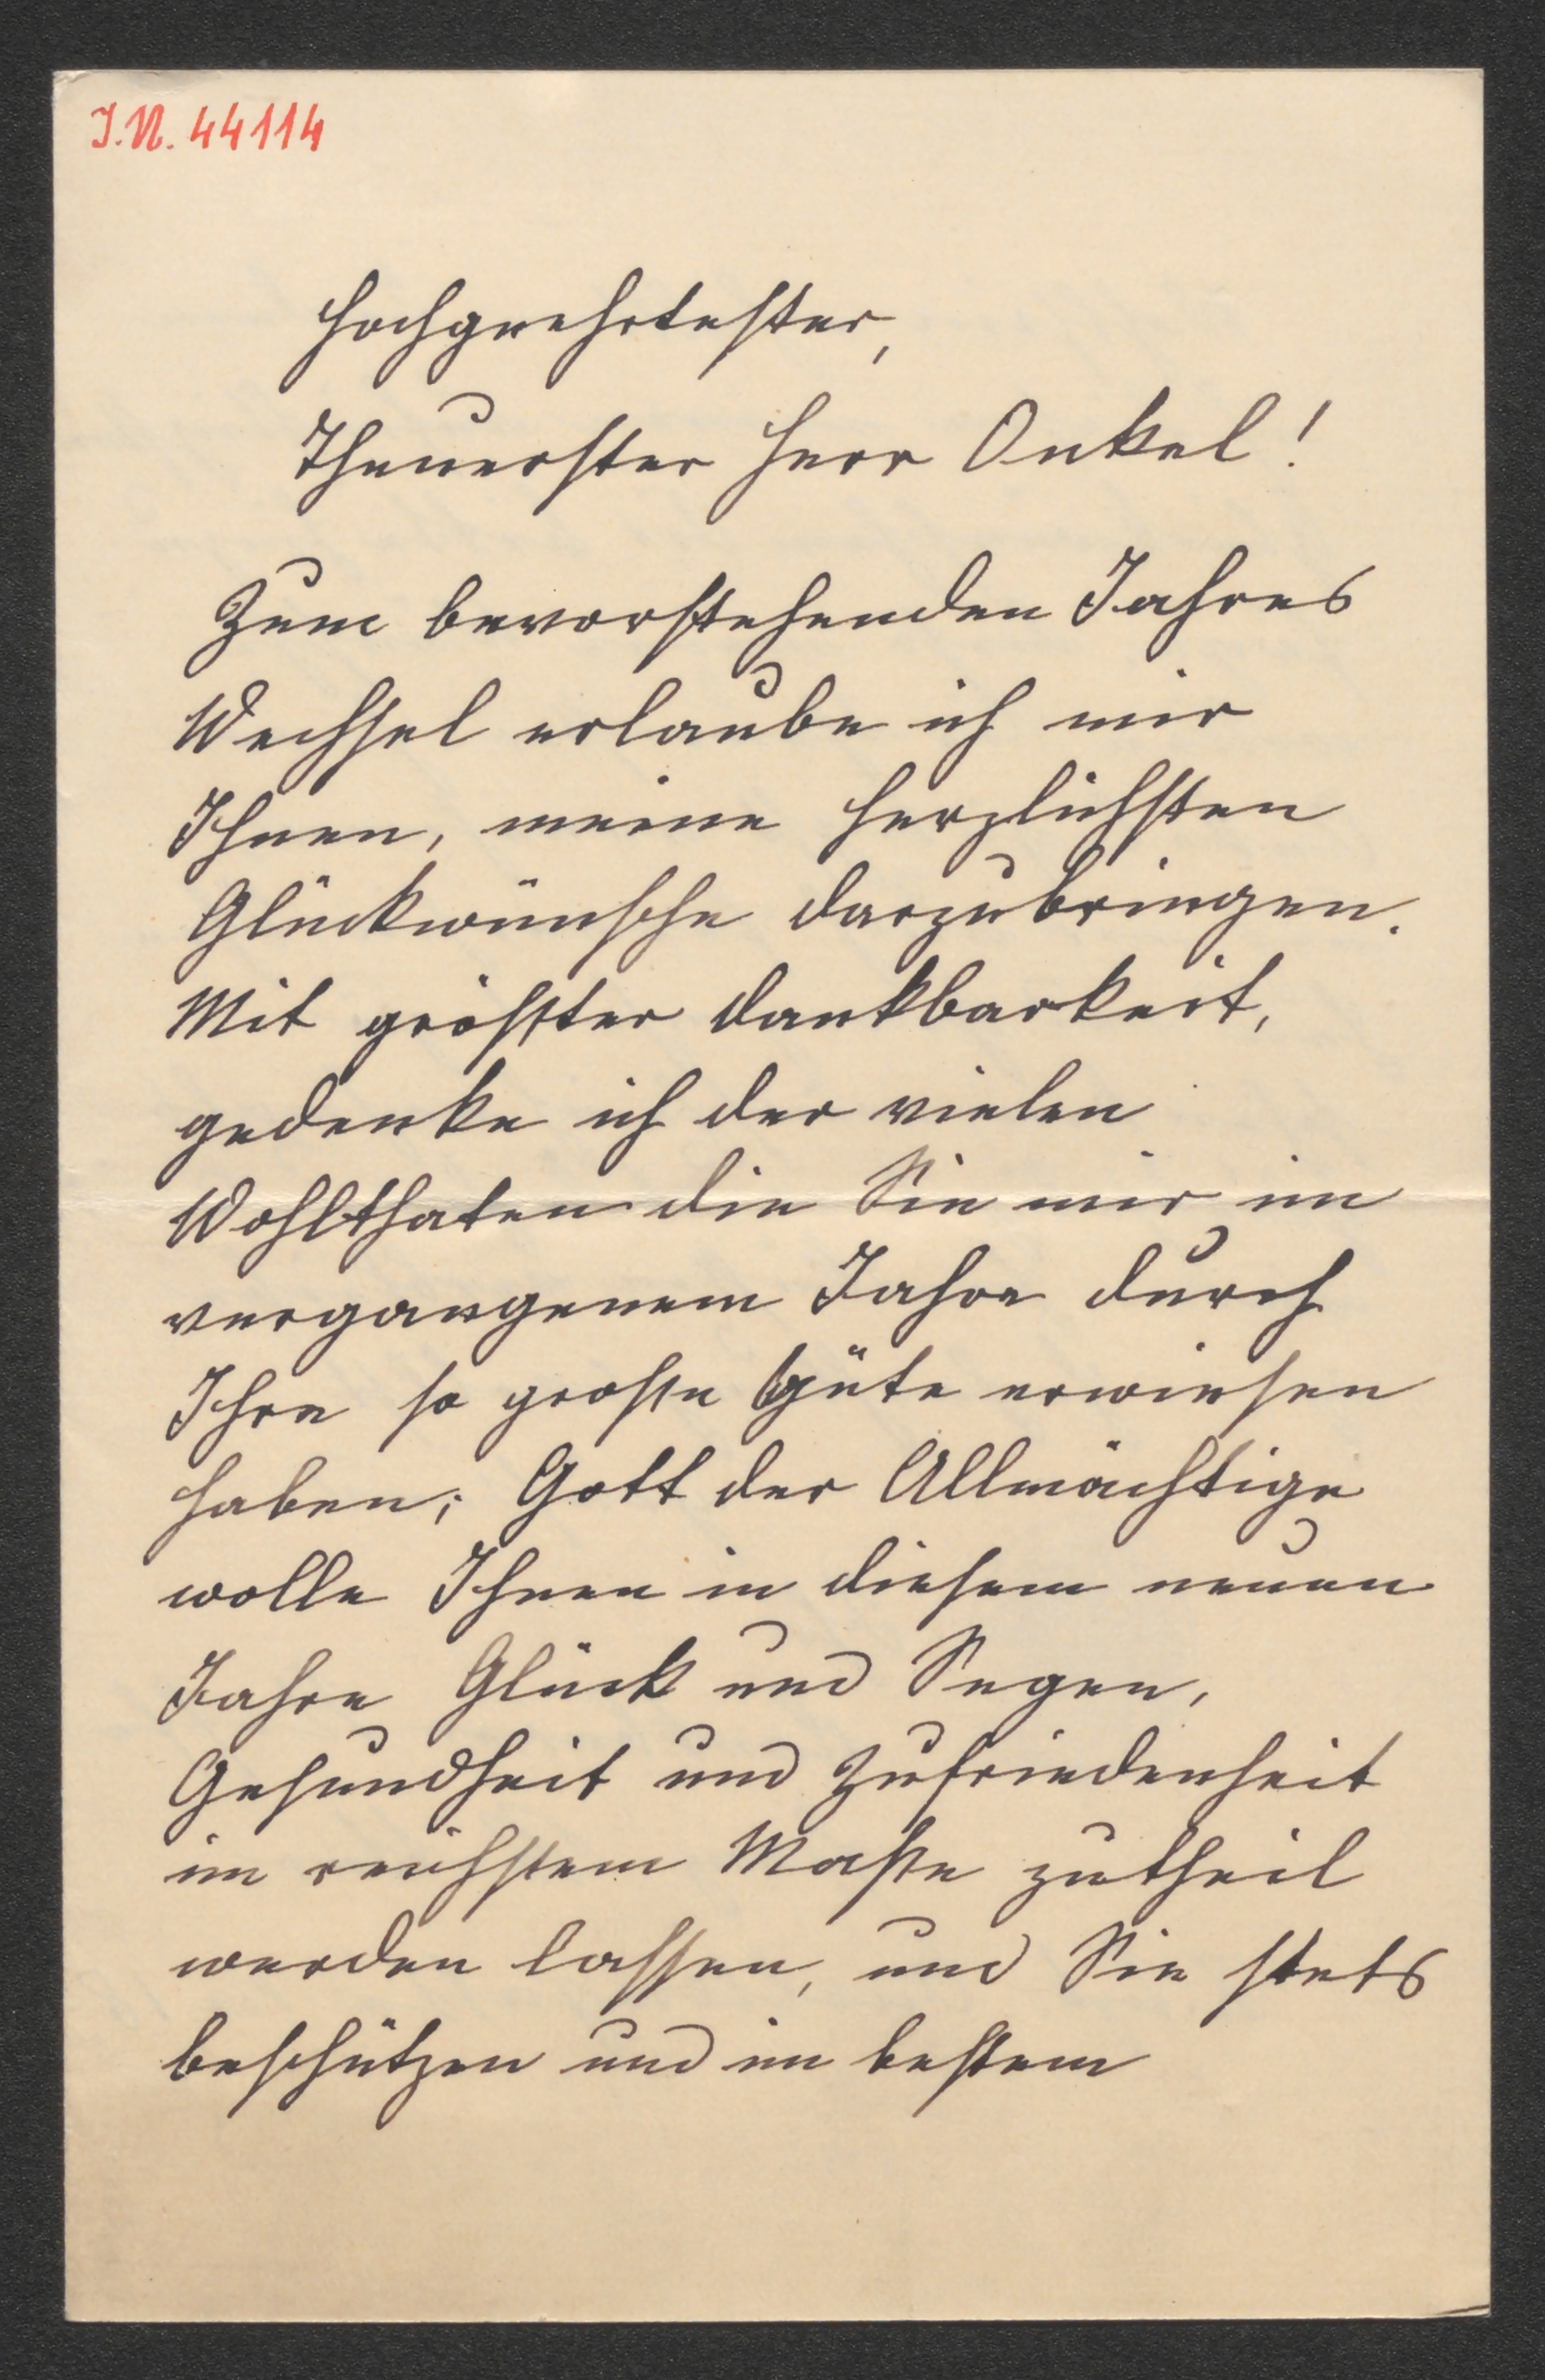 I.N. 44114
Hochgeehrtester,
Theuerster Herr Onkel!
Zum bevorstehenden Jahres
Wechsel erlaube ich mir
Ihnen, meine herzlichsten
Glückwünsche darzubringen.
Mit größter Dankbarkeit,
gedenke ich der vielen
Wohlthaten die Sie mir im
vergangenem Jahre durch
Ihre so große Güte erwiesen
haben; Gott der Allmächtige
wolle Ihnen in diesem neuen
Jahre Glück und Segen,
Gesundheit und Zufriedenheit
im reichstem Maße zutheil
werden lassen, und Sie stets
beschützen und im bestem